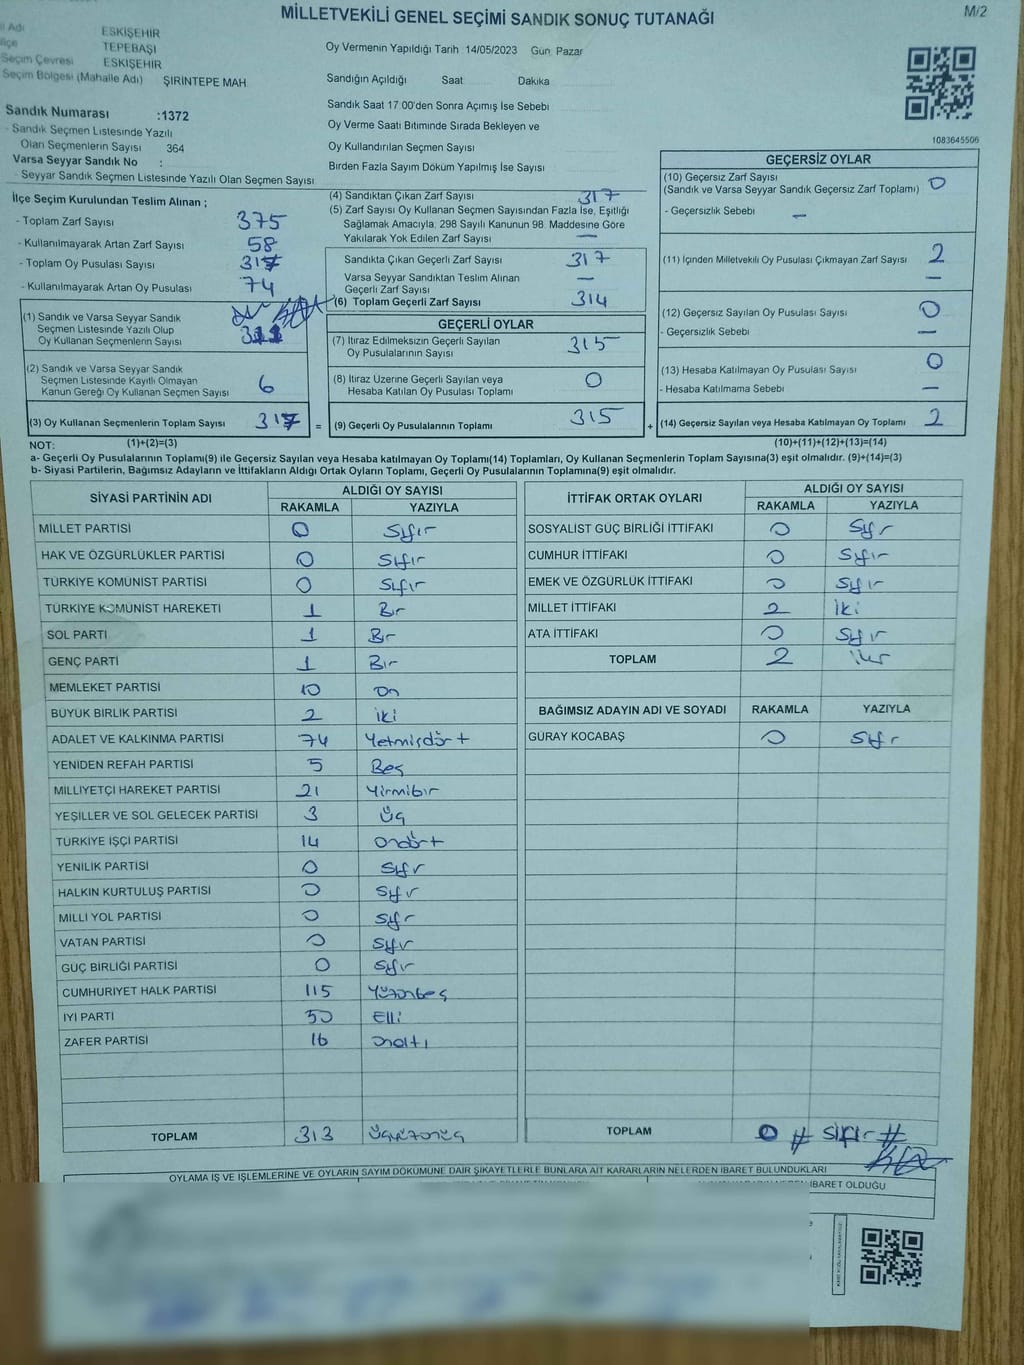 MİLLETVEKİLİ GENEL SEÇİMİ SANDIK SONUÇ TUTANAĞI
M/2
İl Adı ESKİŞEHİR
İlçe TEPEBAŞI
Seçim Çevresi ESKİŞEHİR
Seçim Bölgesi (Mahalle Adı) ŞİRİNTEPE MAH.
Sandık Numarası :1372
- Sandık Seçmen Listesinde Yazılı
Olan Seçmenlerin Sayısı 364
Varsa Seyyar Sandık No :
- Seyyar Sandık Seçmen Listesinde Yazılı Olan Seçmen Sayısı
Oy Vermenin Yapıldığı Tarih 14/05/2023 Gün Pazar
Sandığın Açıldığı Saat Dakika
Sandık Saat 17.00'den Sonra Açımış İse Sebebi
Oy Verme Saati Bitiminde Sırada Bekleyen ve
Oy Kullandırılan Seçmen Sayısı
Birden Fazla Sayım Döküm Yapılmış İse Sayısı
1083645506
İlçe Seçim Kurulundan Teslim Alınan ;
- Toplam Zarf Sayısı 375
- Kullanılmayarak Artan Zarf Sayısı 58
- Toplam Oy Pusulası Sayısı 317
- Kullanılmayarak Artan Oy Pusulası 74
(1) Sandık ve Varsa Seyyar Sandık
Seçmen Listesinde Yazılı Olup
Oy Kullanan Seçmenlerin Sayısı 311
(2) Sandık ve Varsa Seyyar Sandık
Seçmen Listesinde Kayıtlı Olmayan
Kanun Gereği Oy Kullanan Seçmen Sayısı 6
(3) Oy Kullanan Seçmenlerin Toplam Sayısı 317 =
(4) Sandıktan Çıkan Zarf Sayısı 317
(5) Zarf Sayısı Oy Kullanan Seçmen Sayısından Fazla İse, Eşitliği
Sağlamak Amacıyla, 298 Sayılı Kanunun 98. Maddesine Göre
Yakılarak Yok Edilen Zarf Sayısı —
Sandıkta Çıkan Geçerli Zarf Sayısı 317
Varsa Seyyar Sandıktan Teslim Alınan
Geçerli Zarf Sayısı —
(6) Toplam Geçerli Zarf Sayısı 314
GEÇERLİ OYLAR
(7) İtiraz Edilmeksizin Geçerli Sayılan
Oy Pusulalarının Sayısı 315
(8) İtiraz Üzerine Geçerli Sayılan veya
Hesaba Katılan Oy Pusulası Toplamı 0
(9) Geçerli Oy Pusulalarının Toplamı 315 +
GEÇERSİZ OYLAR
(10) Geçersiz Zarf Sayısı
(Sandık ve Varsa Seyyar Sandık Geçersiz Zarf Toplamı) 0
- Geçersizlik Sebebi —
(11) İçinden Milletvekili Oy Pusulası Çıkmayan Zarf Sayısı 2
—
(12) Geçersiz Sayılan Oy Pusulası Sayısı 0
- Geçersizlik Sebebi —
(13) Hesaba Katılmayan Oy Pusulası Sayısı 0
- Hesaba Katılmama Sebebi —
(14) Geçersiz Sayılan veya Hesaba Katılmayan Oy Toplamı 2
NOT: (1)+(2)=(3) (10)+(11)+(12)+(13)=(14)
a- Geçerli Oy Pusulalarının Toplamı(9) ile Geçersiz Sayılan veya Hesaba katılmayan Oy Toplamı(14) Toplamları, Oy Kullanan Seçmenlerin Toplam Sayısına(3) eşit olmalıdır. (9)+(14)=(3)
b- Siyasi Partilerin, Bağımsız Adayların ve İttifakların Aldığı Ortak Oyların Toplamı, Geçerli Oy Pusulalarının Toplamına(9) eşit olmalıdır.
SİYASİ PARTİNİN ADI ALDIĞI OY SAYISI
RAKAMLA YAZIYLA
MİLLET PARTİSİ 0 Sıfır
HAK VE ÖZGÜRLÜKLER PARTİSİ 0 Sıfır
TÜRKİYE KOMÜNİST PARTİSİ 0 Sıfır
TÜRKİYE KOMÜNİST HAREKETİ 1 Bir
SOL PARTİ 1 Bir
GENÇ PARTİ 1 Bir
MEMLEKET PARTİSİ 10 On
BÜYÜK BİRLİK PARTİSİ 2 iki
ADALET VE KALKINMA PARTİSİ 74 Yetmişdört
YENİDEN REFAH PARTİSİ 5 Beş
MİLLİYETÇİ HAREKET PARTİSİ 21 Yirmibir
YEŞİLLER VE SOL GELECEK PARTİSİ 3 Üç
TÜRKİYE İŞÇİ PARTİSİ 14 Ondört
YENİLİK PARTİSİ 0 Sıfır
HALKIN KURTULUŞ PARTİSİ 0 Sıfır
MİLLİ YOL PARTİSİ 0 Sıfır
VATAN PARTİSİ 0 Sıfır
GÜÇ BİRLİĞİ PARTİSİ 0 Sıfır
CUMHURİYET HALK PARTİSİ 115 Yüzonbeş
İYİ PARTİ 50 Elli
ZAFER PARTİSİ 16 Onaltı
TOPLAM 313 Üçyüzonüç
İTTİFAK ORTAK OYLARI ALDIĞI OY SAYISI
RAKAMLA YAZIYLA
SOSYALİST GÜÇ BİRLİĞİ İTTİFAKI 0 Sıfır
CUMHUR İTTİFAKI 0 Sıfır
EMEK VE ÖZGÜRLÜK İTTİFAKI 0 Sıfır
MİLLET İTTİFAKI 2 İki
ATA İTTİFAKI 0 Sıfır
TOPLAM 2 iki
BAĞIMSIZ ADAYIN ADI VE SOYADI RAKAMLA YAZIYLA
GÜRAY KOCABAŞ 0 Sıfır
TOPLAM 0 # Sıfır #
OYLAMA İŞ VE İŞLEMLERİNE VE OYLARIN SAYIM DÖKÜMÜNE DAİR ŞİKAYETLERLE BUNLARA AİT KARARLARIN NELERDEN İBARET BULUNDUKLARI
İBARET OLDUĞU